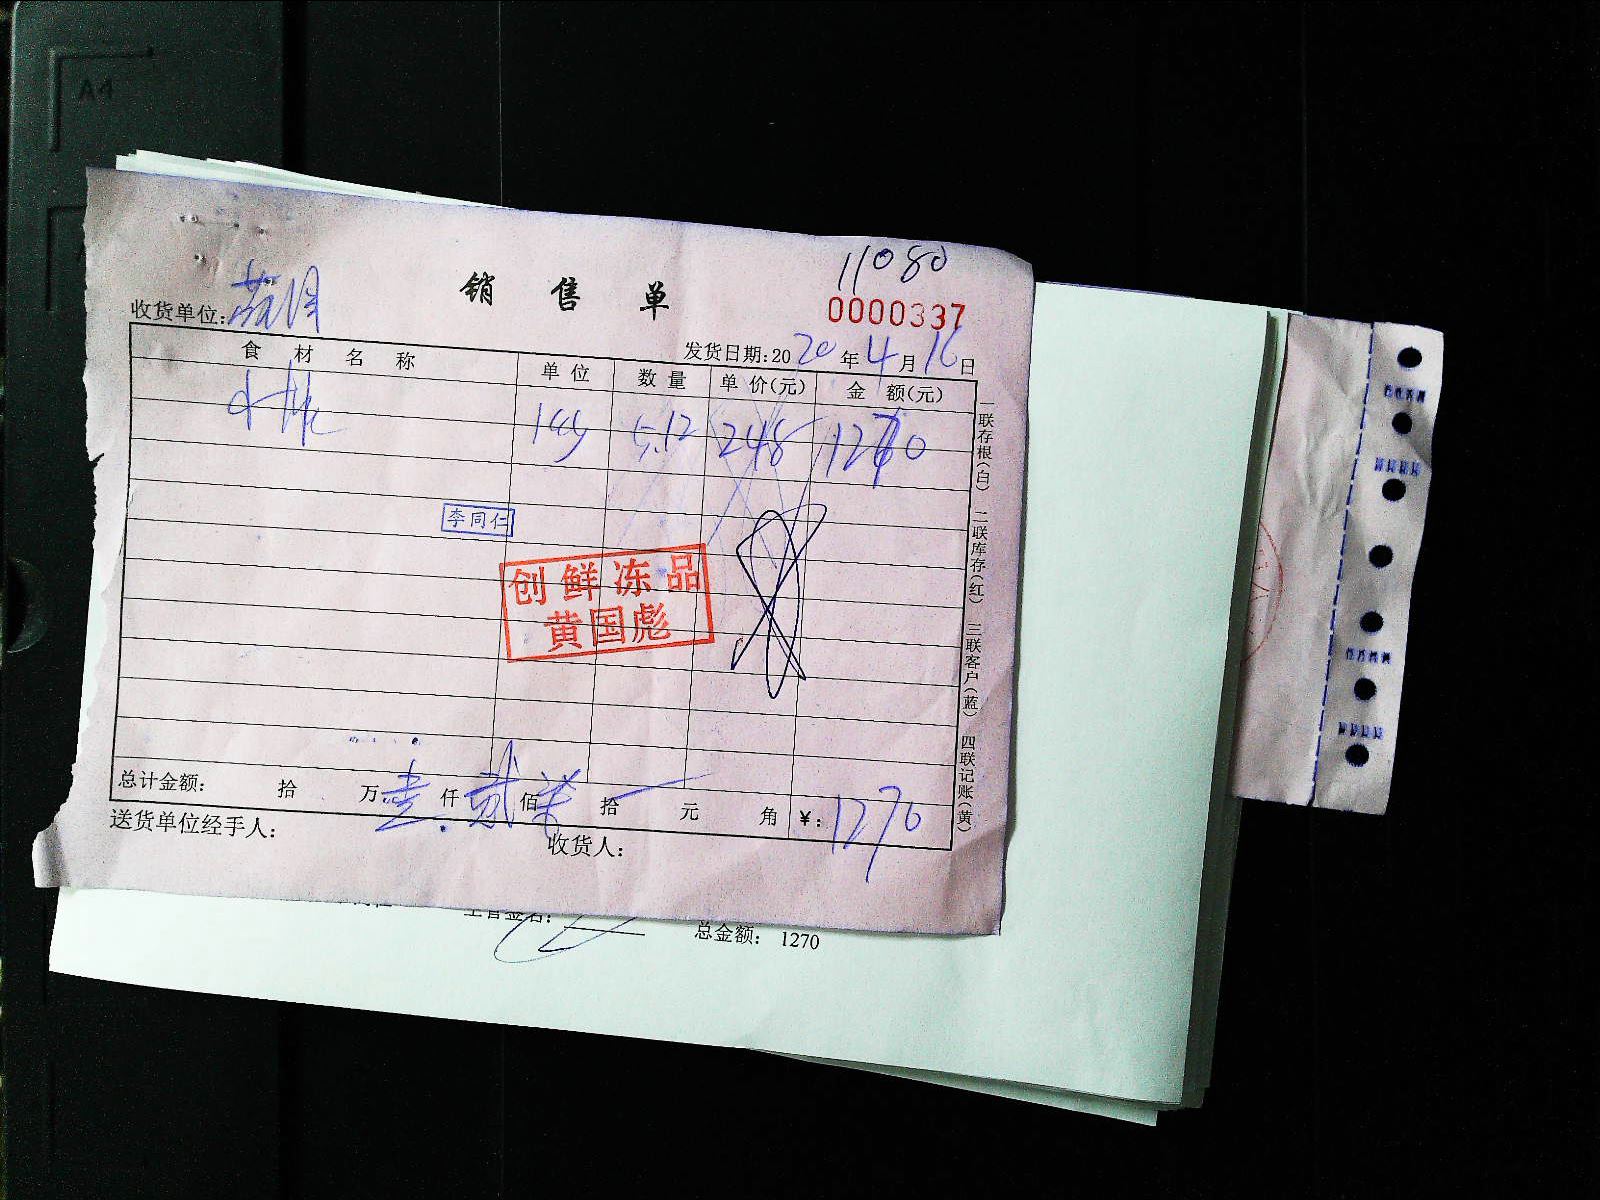 A4
11080
销售单
0000337
收货单位:
发货日期:2020年4月16日
食材名称 单位 数量 单价(元) 金额(元)
5.12 248 1270
李同仁
创鲜冻品
黄国彪
一联存根(白) 二联库存(红) 三联客户(蓝) 四联记账(黄)
总计金额: 拾 万 壹 仟 贰 佰 柒 拾 元 角 ¥: 1270
送货单位经手人: 收货人:
主管签名:
总金额: 1270